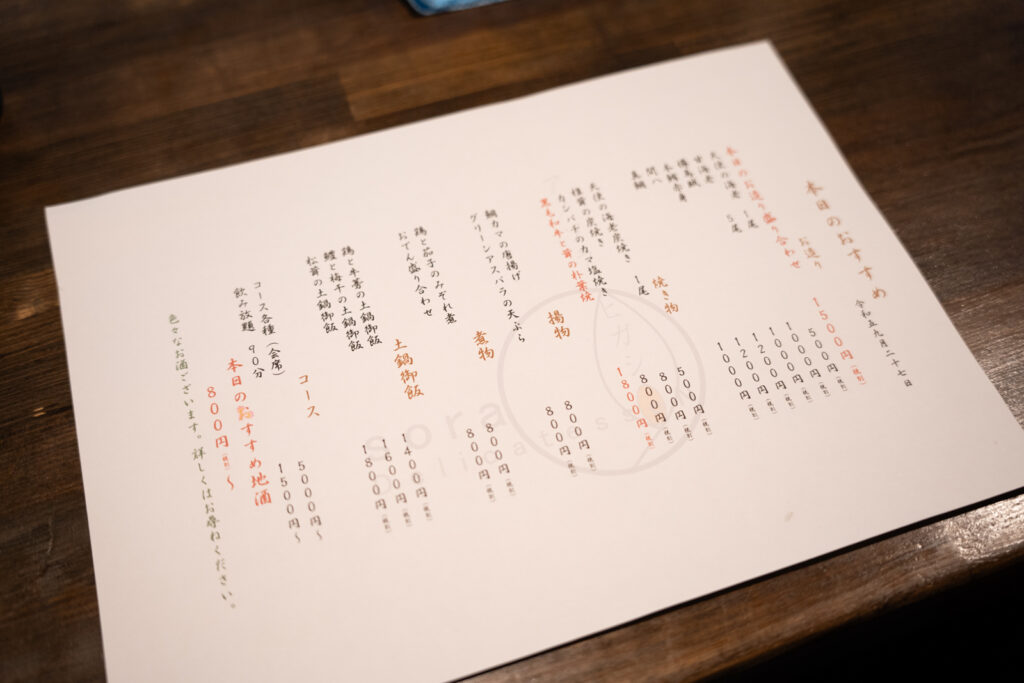 本日のおすすめ
令和五年九月二十七日
お造り
本日のお造り盛り合わせ 1500円(税別)
天使の海老 1尾 500円(税別)
甘海老 5尾 1000円(税別)
本鮪赤身 1200円(税別)
間八 1200円(税別)
真鯛 1000円(税別)
焼き物
天使の海老炭焼き 1尾 500円(税別)
椎茸の炭焼き 800円(税別)
カンパチのカマ塩焼き 800円(税別)
黒毛和牛と茸の朴葉焼 1800円(税別)
揚物
鯛カマの唐揚げ 800円(税別)
グリーンアスパラの天ぷら 800円(税別)
煮物
鶏と茄子のみぞれ煮 800円(税別)
おでん盛り合わせ 800円(税別)
土鍋御飯
鶏と牛蒡の土鍋御飯 1400円(税別)
鱧と梅干の土鍋御飯 1600円(税別)
松茸の土鍋御飯 1800円(税別)
コース
コース各種(会席) 5000円~
飲み放題 90分 1500円~
本日のおすすめ地酒
800円(税別)~
色々なお酒ございます。詳しくはお尋ねください。
ヒガシ
sora
Delicatess